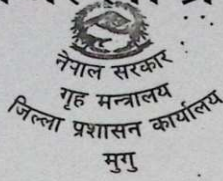 नेपाल सरकार
गृह मन्त्रालय
जिल्ला प्रशासन कार्यालय
मुगु